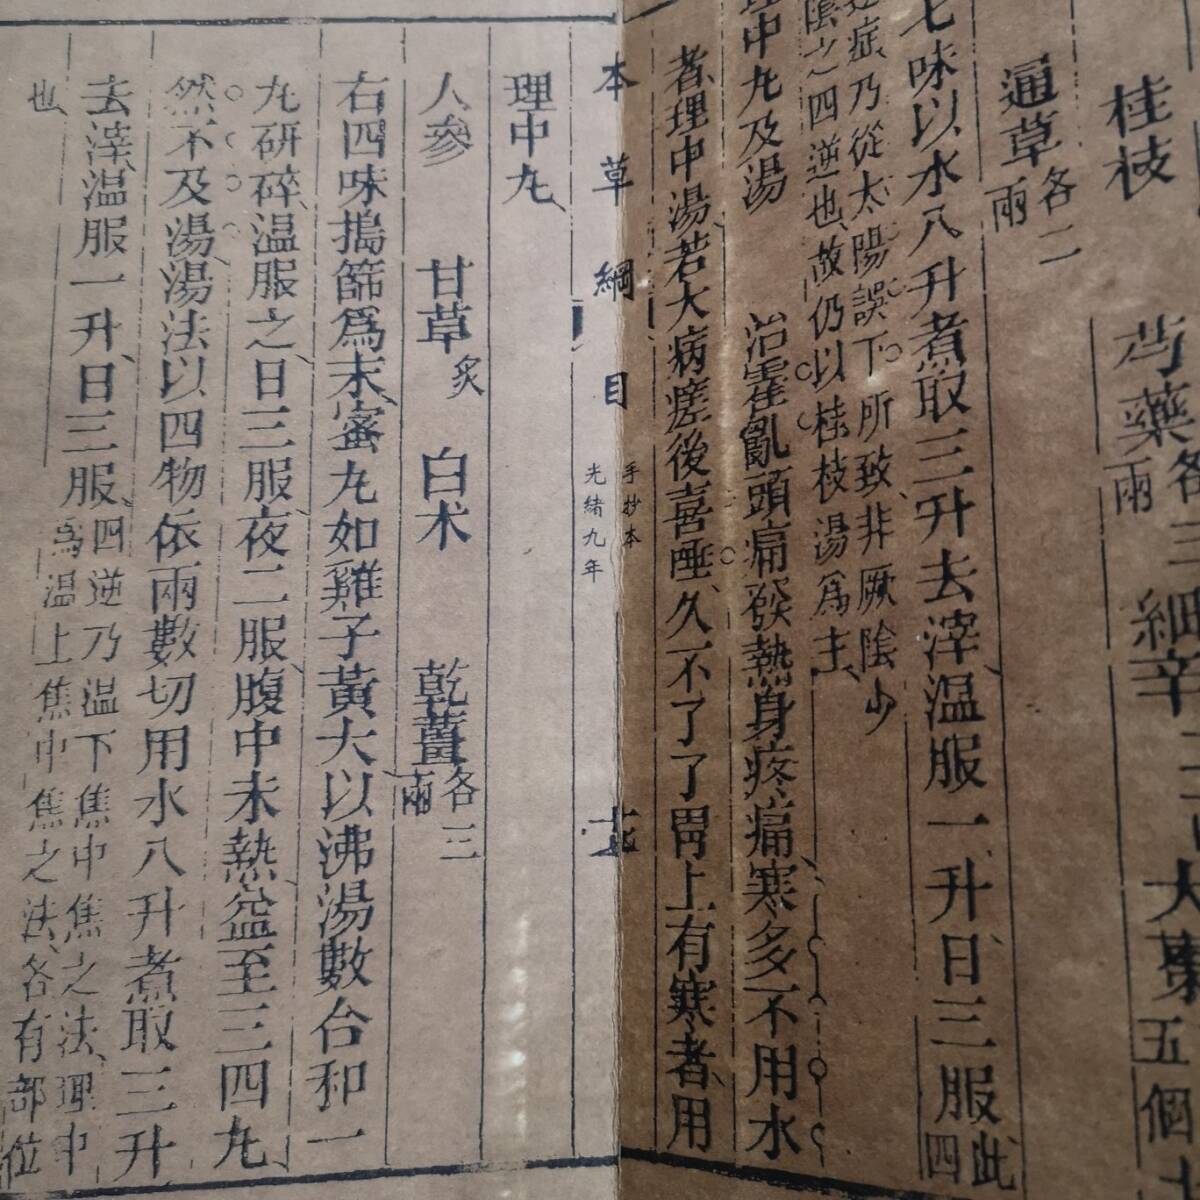 桂枝　芍藥各三兩　細辛　大棗五個
通草各二兩
七味以水八升煮取三升去滓溫服一升日三服此四
症乃從太陽誤下所致非厥陰少
陰之四逆也故仍以桂枝湯爲主
理中九及湯　治霍亂頭痛發熱身疼痛寒多不用水
者理中湯若大病瘥後喜唾久不了了胃上有寒者用
本草綱目　手抄本　光緒九年
理中九
人參　甘草炙　白术　乾薑各三兩
右四味搗篩爲末蜜九如雞子黃大以沸湯數合和一
九研碎溫服之日三服夜二服腹中未熱益至三四九
然不及湯湯法以四物依兩數切用水八升煮取三升
去滓溫服一升日三服四逆乃溫下焦中焦之法理中
爲溫上焦中焦之法各有部位
也